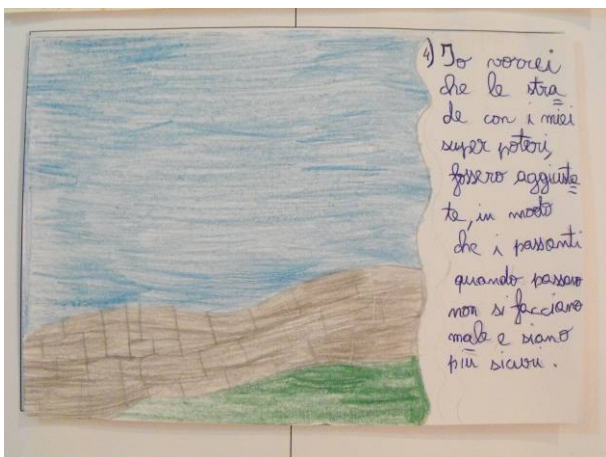 4) Io vorrei
che le stra=
de con i miei
super poteri,
fossero aggiusta=
te, in modo
che i passanti
quando passano
non si facciano
male e siano
più sicuri.